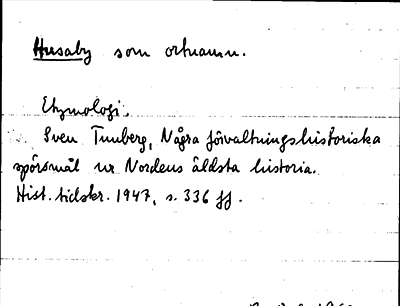 Husaby som ortnamn.
Etymologi.
Sven Tunberg, Några förvaltningshistoriska
spörsmål ur Nordens äldsta historia.
Hist. tidskr. 1947, s. 336 ff.